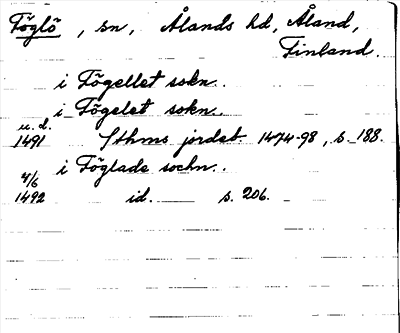 Föglö, sn, Ålands hd, Åland,
Finland.
i Fögellet sokn.
i Fögelet sokn.
u.d.
1491 Sthms jordeb. 1474-98, s. 188.
i Föglade sochn.
4/6
1492 id. s. 206.